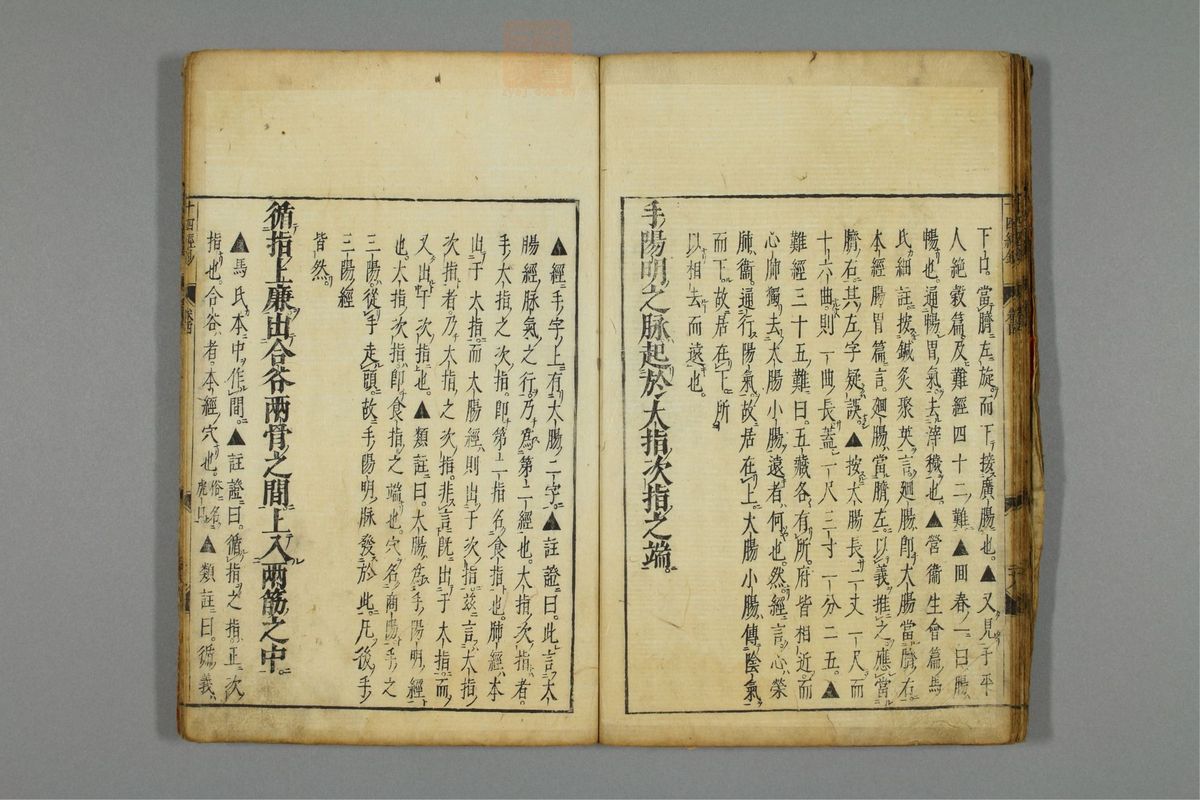 下口當臍左旋而下接廣腸也▲又見于平
人絶穀篇及難經四十二難▲回春一曰腸
暢也通暢胃氣去滓穢也▲營衞生會篇馬
氏細註按鍼灸聚英言廻腸即大腸當臍右
本經腸胃篇言廻腸當臍左以義推之應當
臍右其左字疑誤▲按大腸長二丈一尺而
十六曲則一曲長蓋一尺三寸一分二五▲
難經三十五難曰五藏各有所府皆相近而
心肺獨去大腸小腸遠者何也然經言心榮
肺衞通行陽氣故居在上大腸小腸傳陰氣
而下故居在下所
以相去而遠也
手陽明之脉起於大指次指之端
▲經手字上有大腸二字▲註證曰此言大
腸經脉氣之行乃爲第二經也大指次指者
手大指之次指即第二指名食指也肺經本
出于大指而大腸經則出于次指兹言大指
次指者乃大指之次指非言既出于大指而
又出于次指也▲類註曰大腸爲手陽明經
也大指次指即食指之端也穴名商陽手之
三陽從手走頭故手陽明脉發於此凡後手
三陽經
皆然
循指上廉出合谷兩骨之間上入兩筋之中
▲馬氏本中作間▲註證曰循指之指正次
指也合谷者本經穴也俗名虎口▲類註曰循義